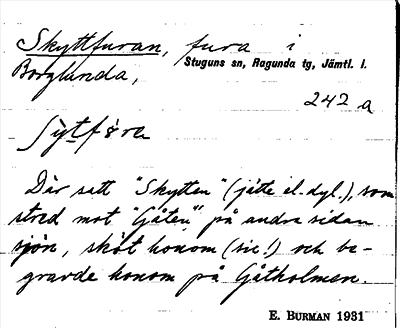 Skyttfuran, fura i
Stuguns sn, Ragunda tg, Jämtl. l.
Borglunda,
242 a
Där satt "Skytten" (jätte el. dyl.), som
stred mot "Gåten" på andra sidan
sjön, sköt honom (sic!) och be-
gravde honom på Gåtholmen.
E. BURMAN 1931